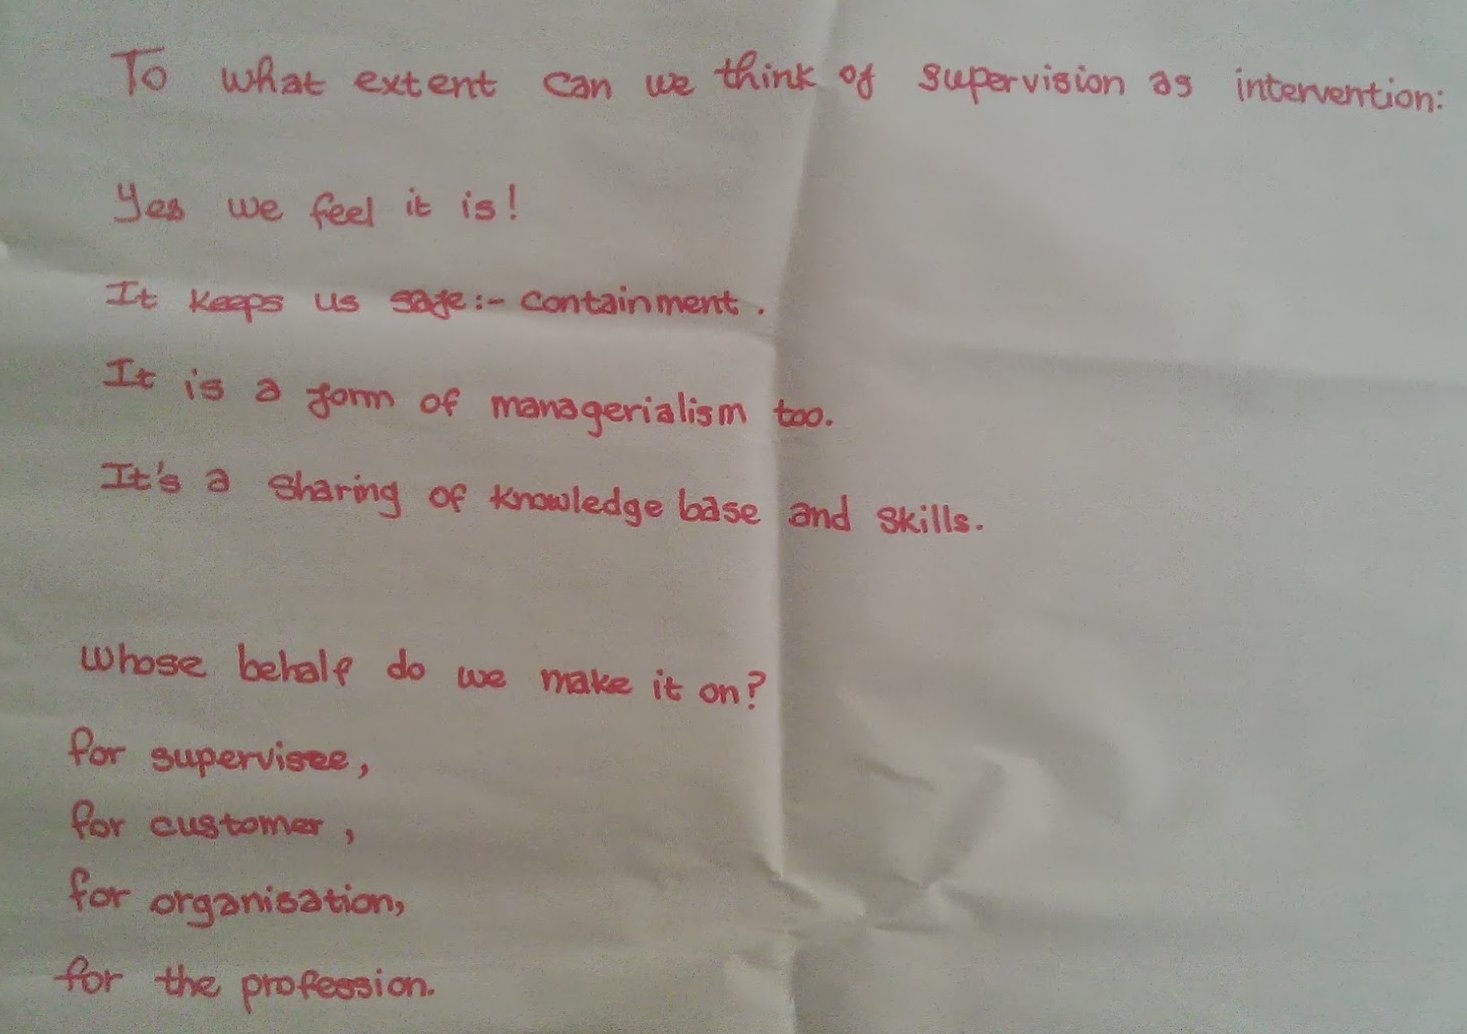 To what extent can we think of supervision as intervention:
Yes we feel it is!
It keeps us safe:- containment.
It is a form of managerialism too.
It's a sharing of knowledge base and skills.
Whose behalf do we make it on?
for supervisee,
for customer,
for organisation,
for the profession.